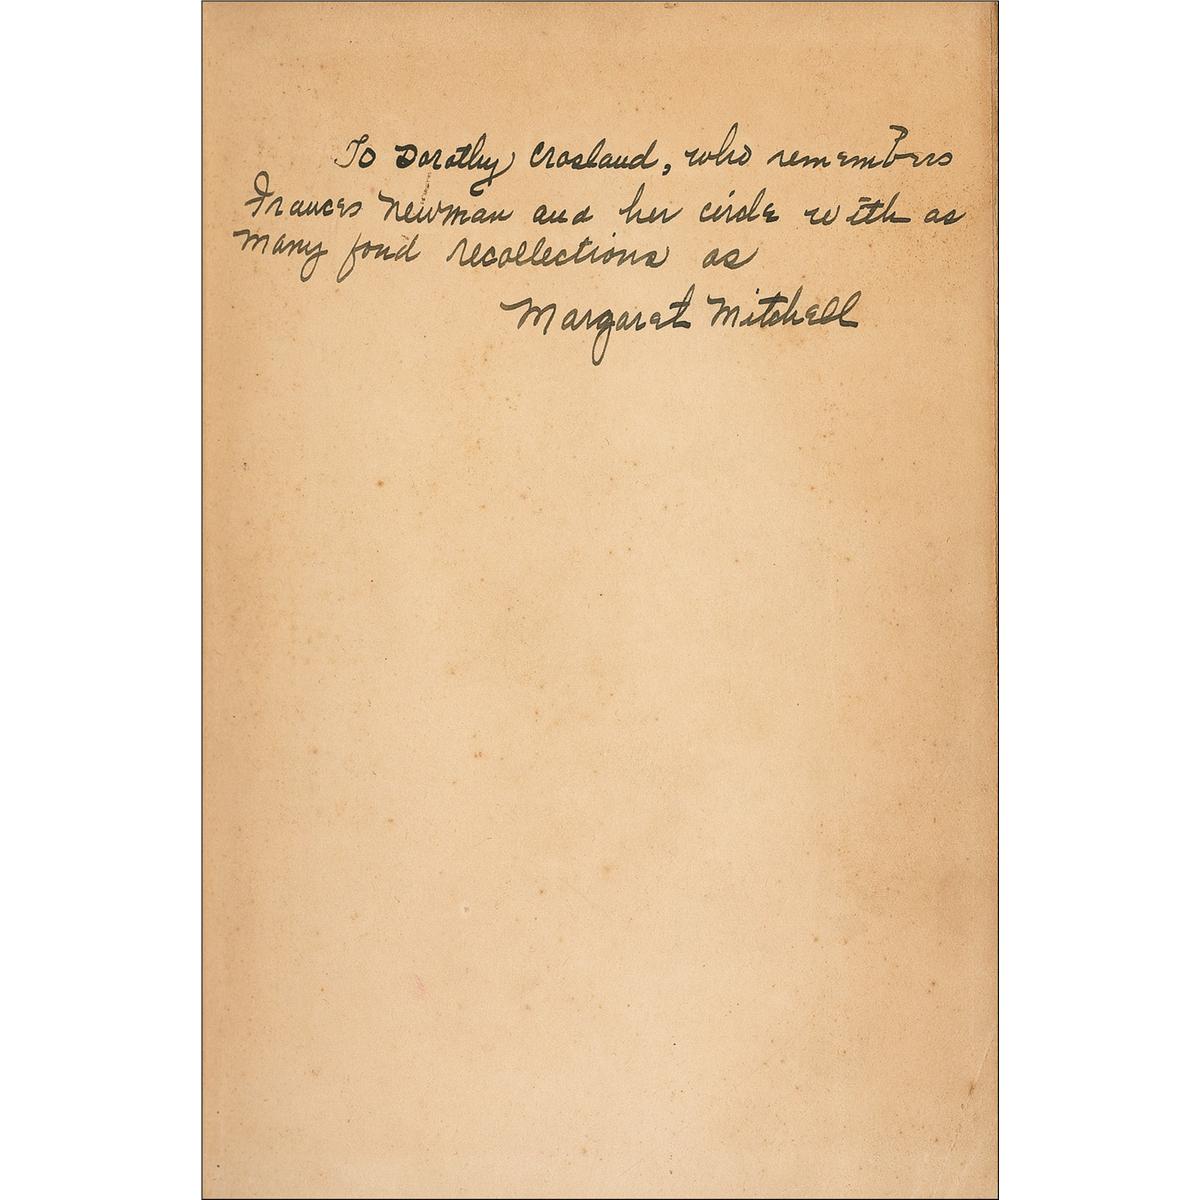 To Dorothy Crosland, who remembers
Frances Newman and her circle with as
many fond recollections as
Margaret Mitchell